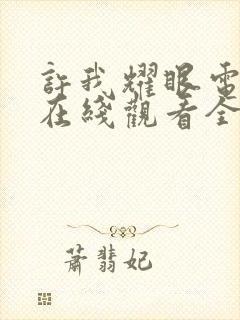 許我耀眼電
在綫觀看全
蕭翡妃